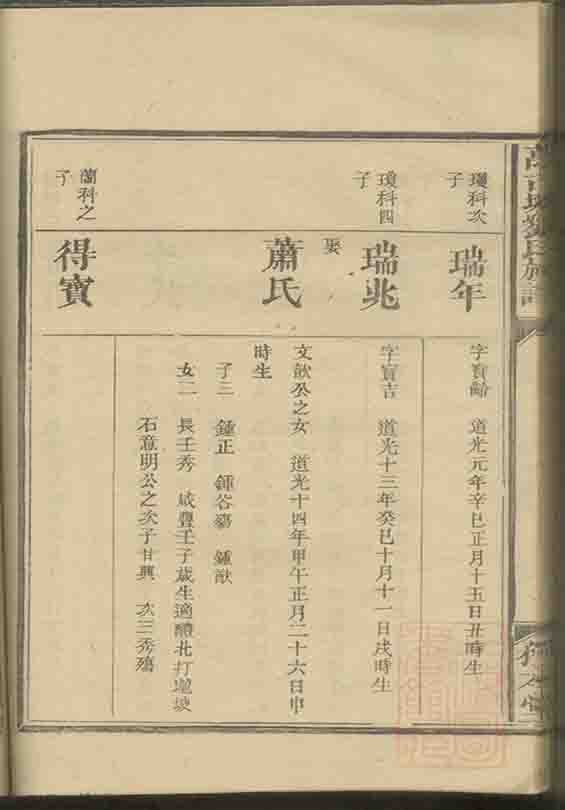 瓊科次
子
瑞年
字寶齡 道光元年辛巳正月十五日丑時生
瓊科四
子
瑞兆
字寶吉 道光十三年癸巳十月十一日戌時生
娶
蕭氏
文歆公之女 道光十四年甲午正月二十六日申
時生
子三 鍾正 鍾谷 鍾猷
女二 長壬秀 咸豐壬子歲生適醴北打 坡
石意明公之次子甘興 次三秀殤
蘭科之
子
得寶